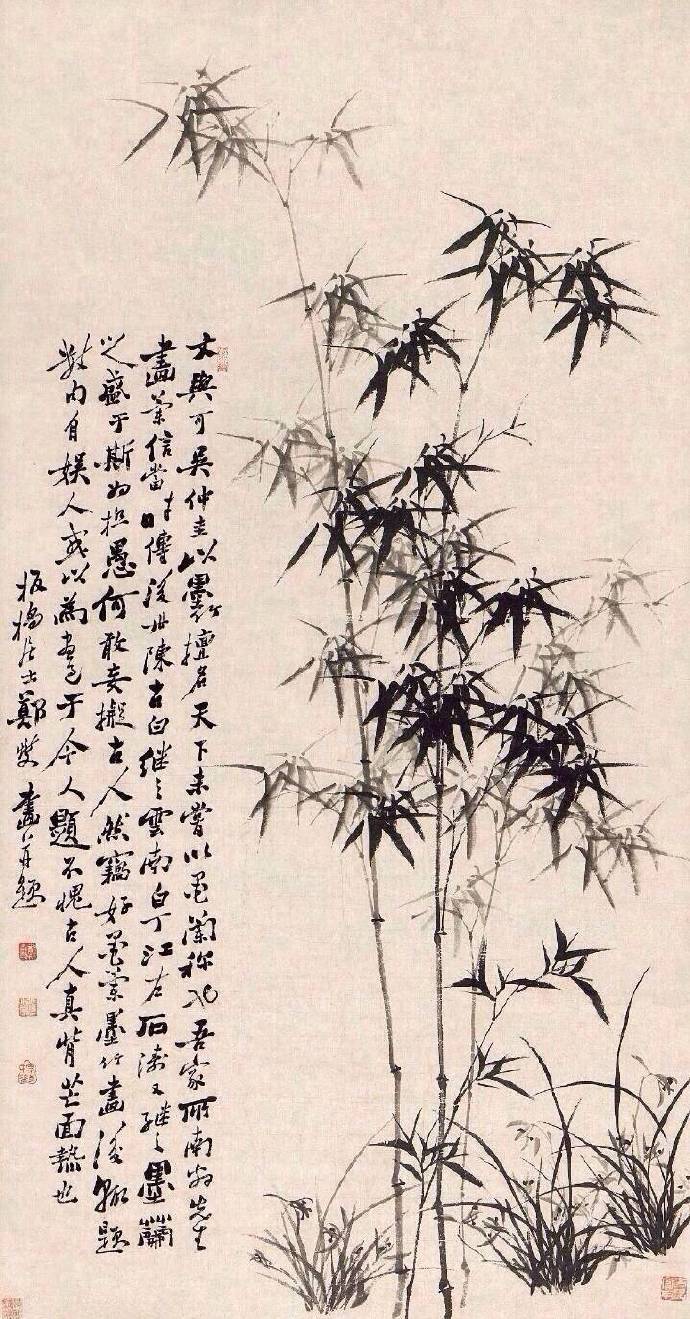 文與可吳仲圭以墨竹擅名天下未嘗以墨蘭稱也吾家所南翁先生
畫蘭信當時傳後世陳古白繼之雲南白丁江左石濤又繼之墨蘭
之盛于斯为極愚何敢妄擬古人然竊好墨蘭墨竹畫後輒題
數句自娛人或以為畫于今人題不愧古人真背芒面熱也
板橋居士鄭燮畫并題